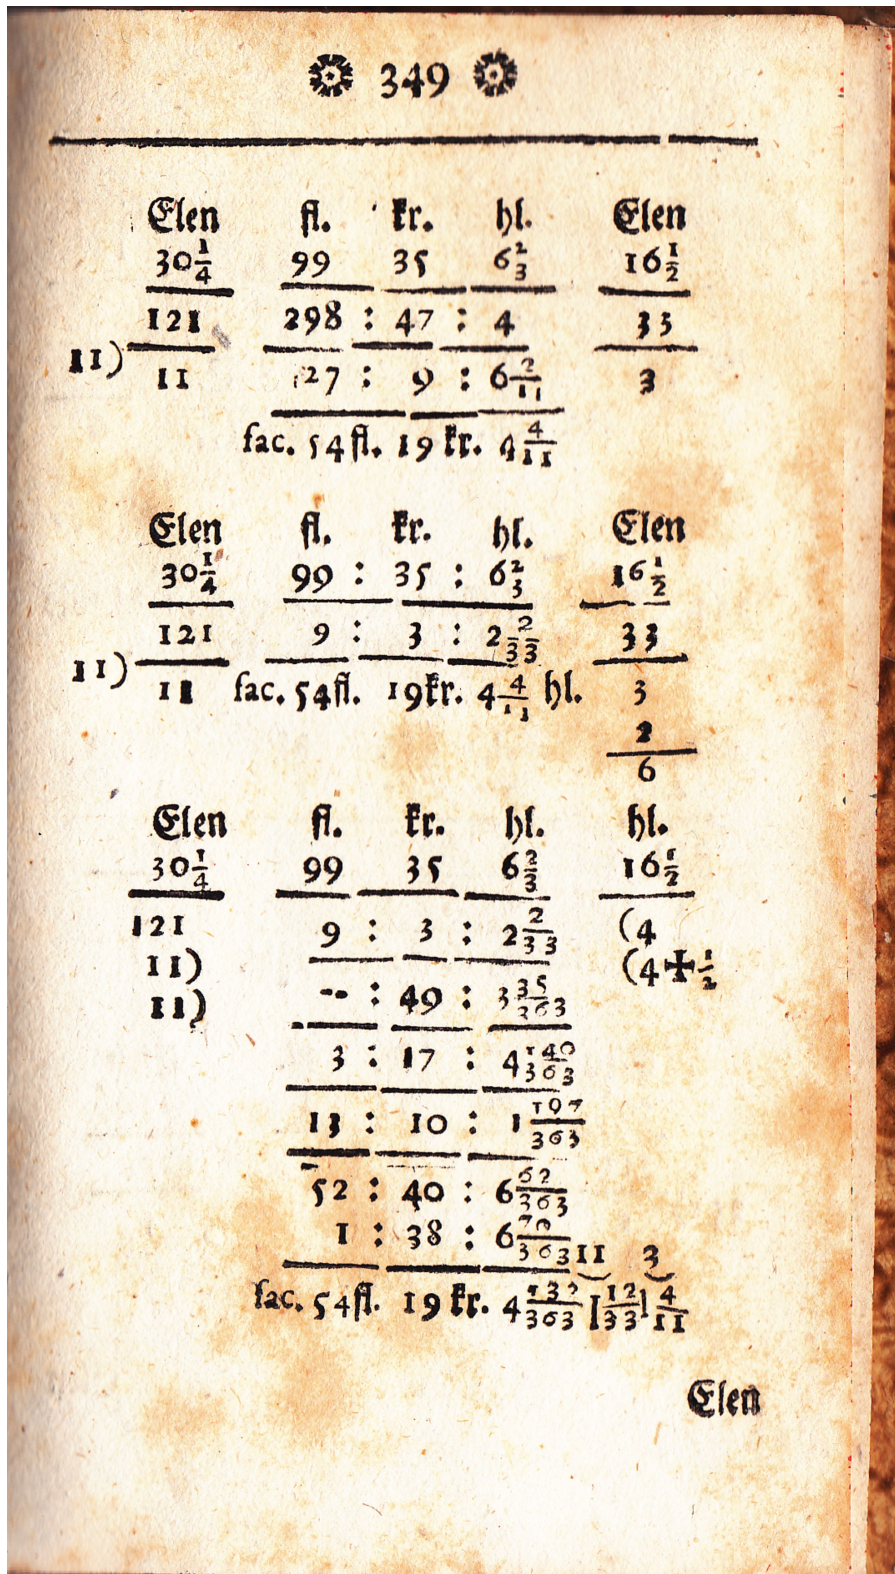 349
Elen fl. kr. hl. Elen
30 1/4 99 35 6 2/3 16 1/2
121 298 : 47 : 4 33
11)
11 27 : 9 : 6 2/11 3
fac. 54 fl. 19 kr. 4 4/11
Elen fl. kr. hl. Elen
30 1/4 99 : 35 : 6 2/3 16 1/2
121 9 : 3 : 2 2/33 33
11)
11 fac. 54 fl. 19 kr. 4 4/11 hl. 3
2
6
Elen fl. kr. hl. hl.
30 1/4 99 35 6 2/3 16 1/2
121 9 : 3 : 2 2/33 (4
11) (4 ✠ 1/2
11) -- : 49 : 3 35/363
3 : 17 : 4 140/363
13 : 10 : 1 197/363
52 : 40 : 6 62/363
1 : 38 : 6 70/363 11 3
fac. 54 fl. 19 kr. 4 132/363 | 12/33 | 4/11
Elen